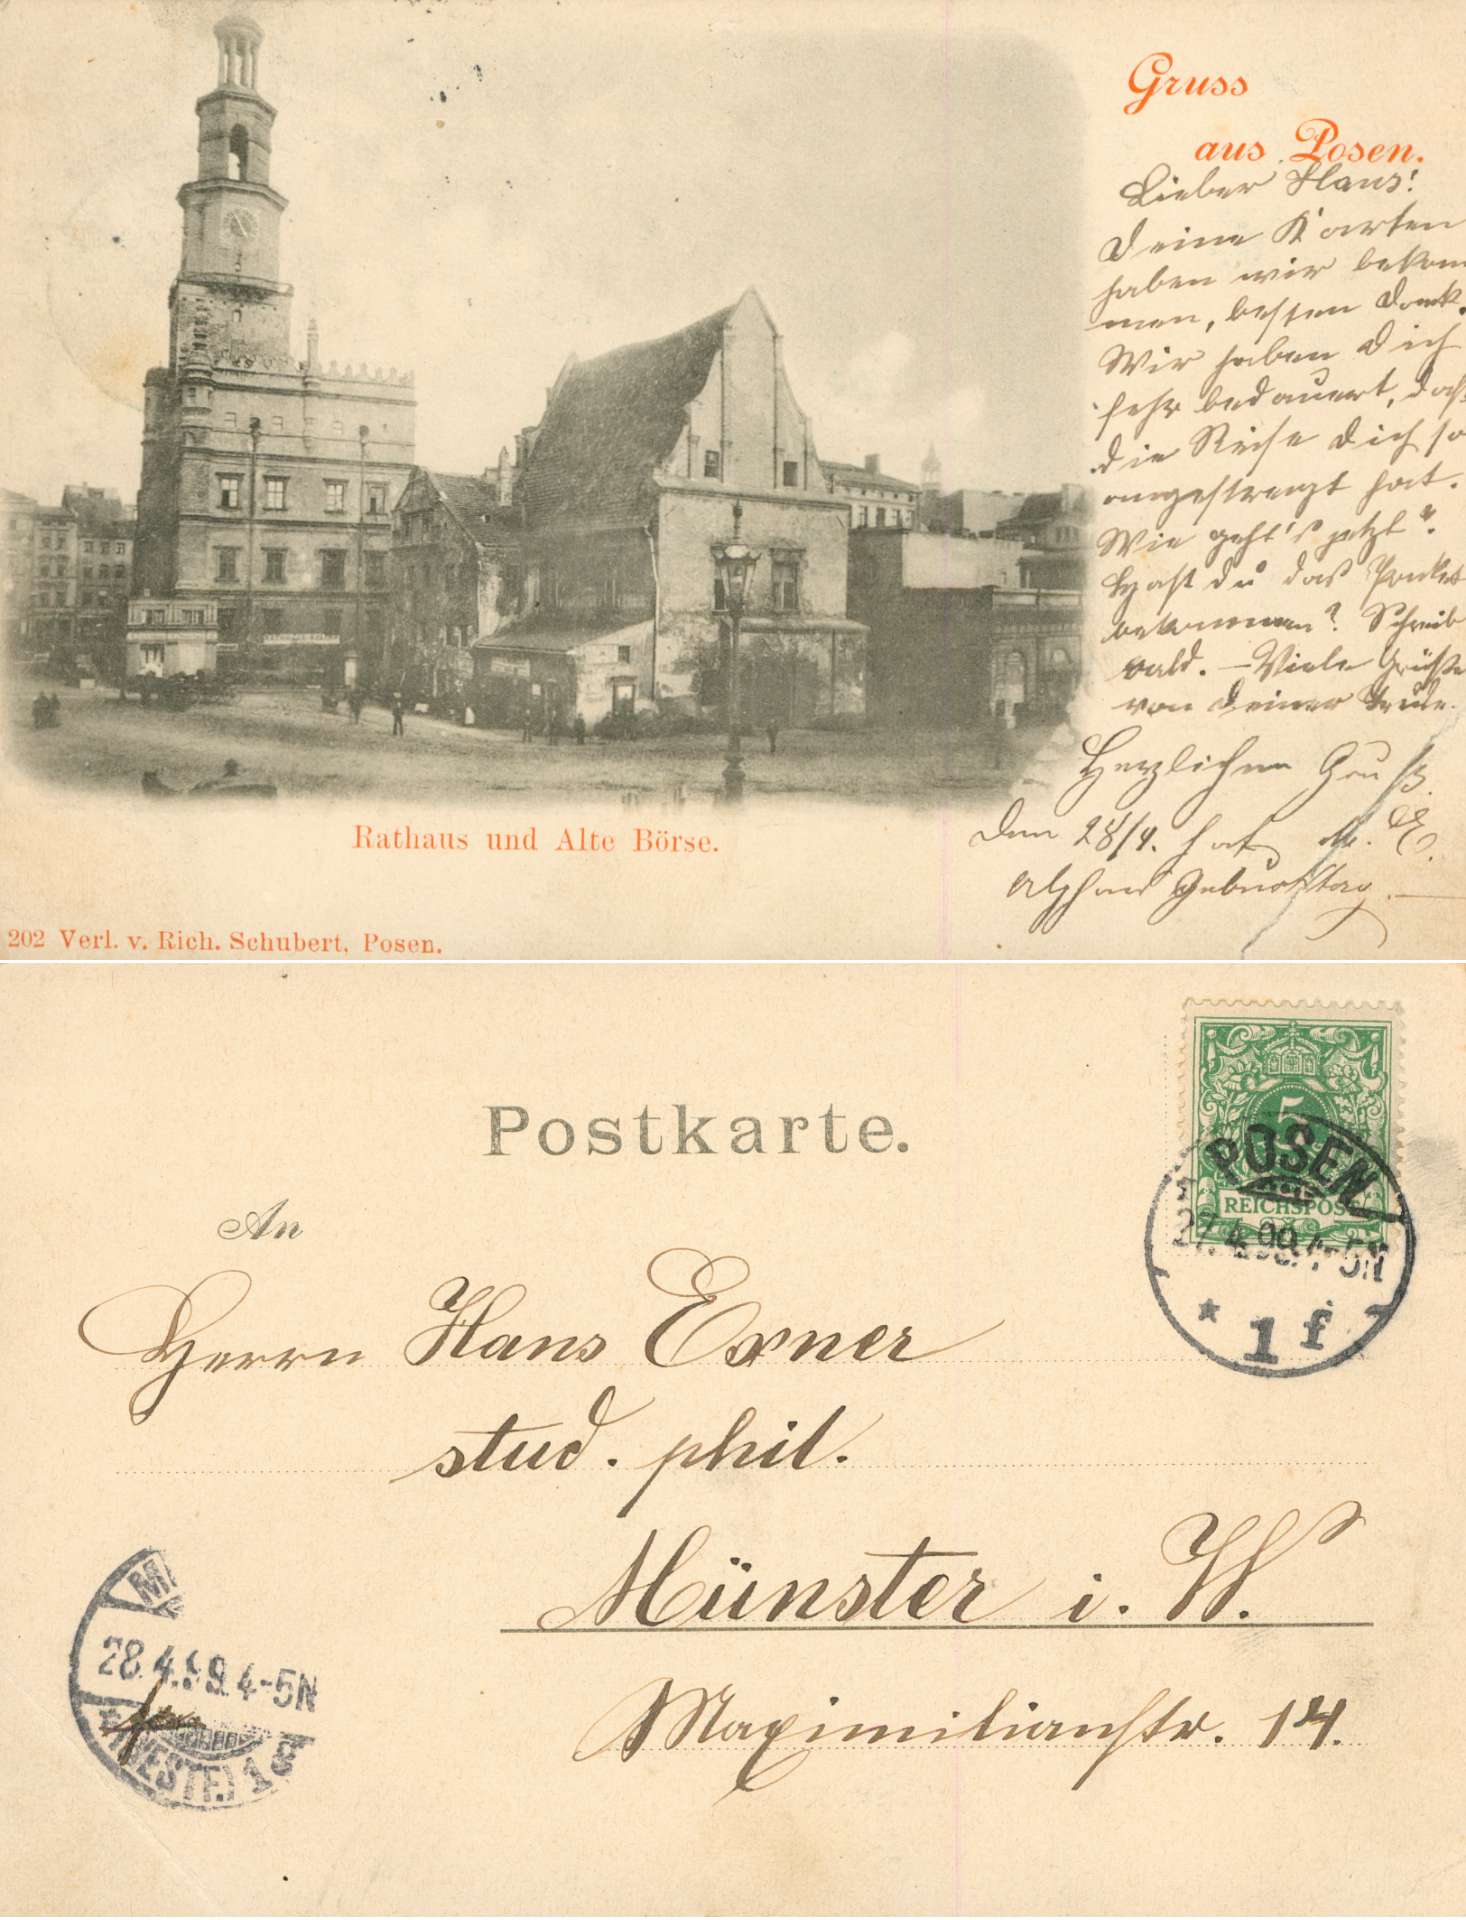 Gruss
aus Posen.
Lieber Hans!
Deine Karten
haben wir bekom
men, besten Dank.
Wir haben Dich
sehr bedauert, daß
die Reise Dich so
angestrengt hat.
Wie geht's jetzt?
Hast du das Packet
bekommen? Schreib
bald. – Viele Grüße
von Deiner Trude.
Herzlichen Gruß.
Den 28/4. hat
Geburtstag.
Rathaus und Alte Börse.
202 Verl. v. Rich. Schubert, Posen.
Postkarte.
5
REICHSPOST
POSEN
27.4.99.4-5N
* 1 f
An
Herrn Hans Exner
stud. phil.
Münster i. W.
Maximilianstr. 14.
28.4.99.4-5N
(WESTF.) 1